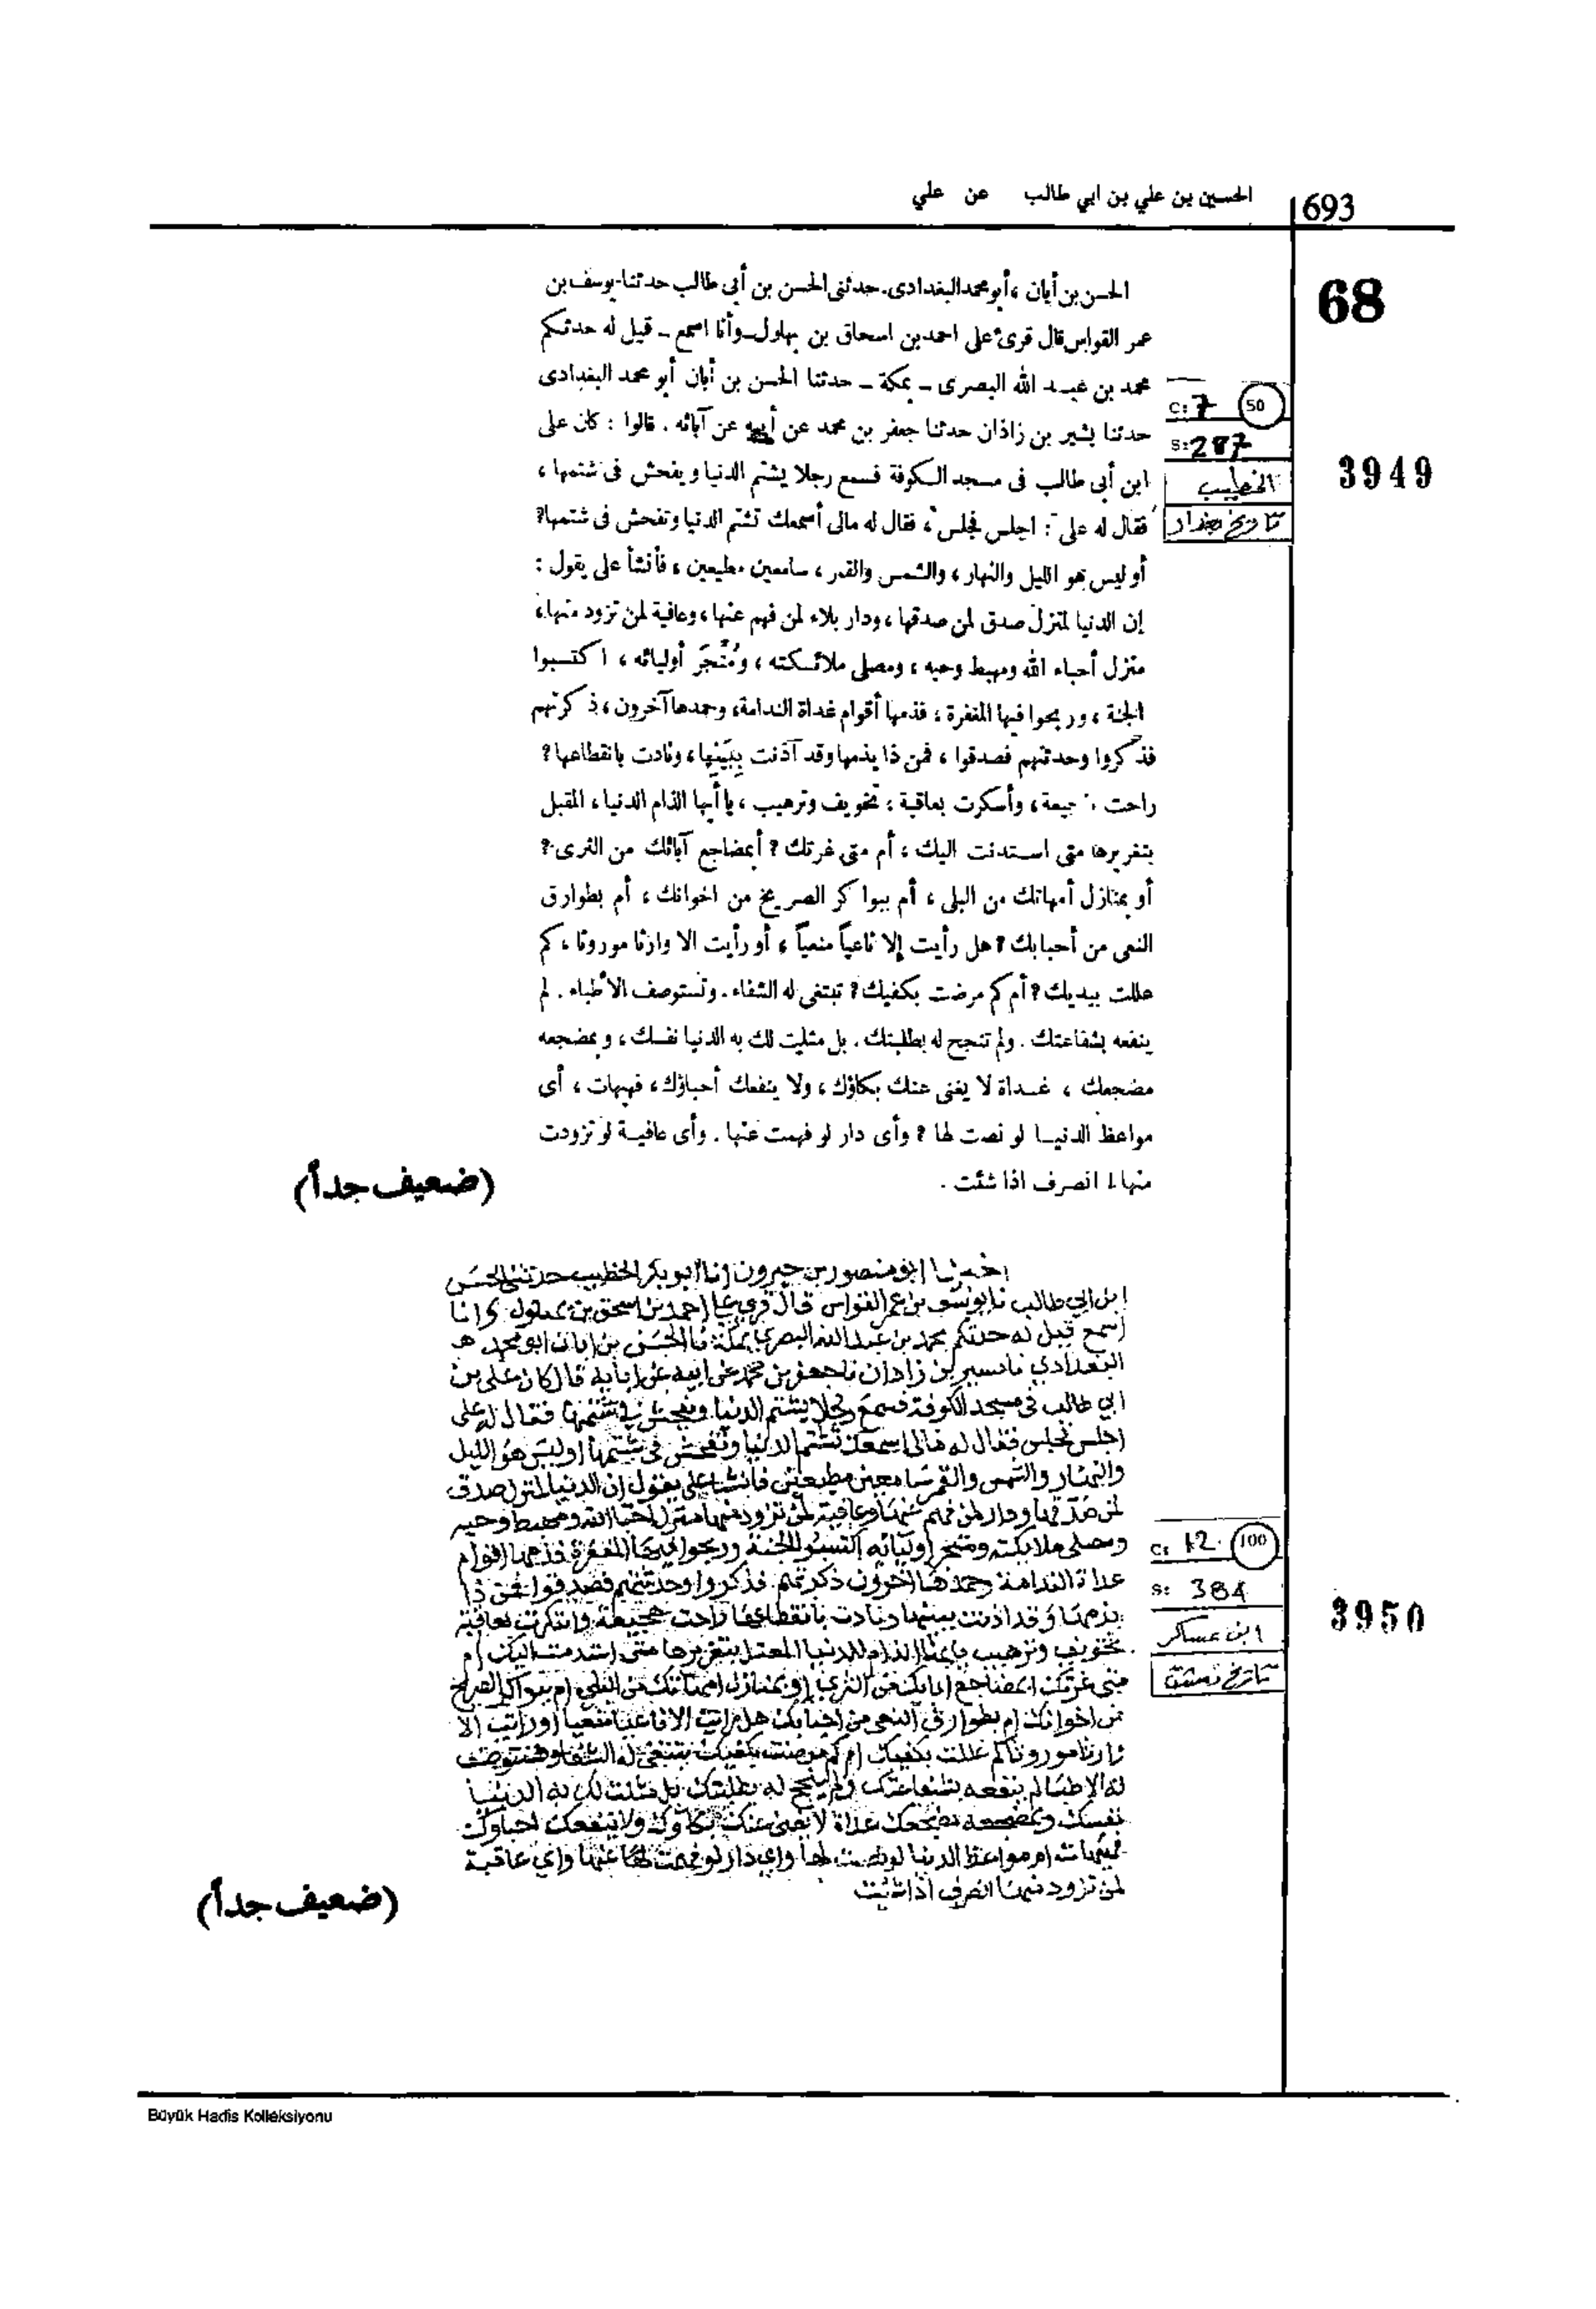 الحسين بن علي بن ابي طالب عن علي
693
68
الحسن بن أبان ، أبو محمد البغدادى. حدثنى الحسن بن أبى طالب حدثنا يوسف بن
عمر القواس قال قرئ على احمد بن اسحاق بن بهلول ــ وأنا اسمع ــ قيل له حدثكم
محمد بن عبد الله البصرى ــ بمكة ــ حدثنا الحسن بن أبان أبو محمد البغدادى
حدثنا بشير بن زاذان حدثنا جعفر بن محمد عن أبيه عن آبائه . قالوا : كان على
ابن أبى طالب فى مسجد الكوفة فسمع رجلا يشتم الدنيا ويفحش فى شتمها ،
فقال له على : اجلس فجلس ، فقال له مالى أسمعك تشتم الدنيا وتفحش فى شتمها؟
أو ليس هو الليل والنهار ، والشمس والقمر ، سامعين مطيعين ، فأنشأ على يقول :
إن الدنيا لمنزل صدق لمن صدقها ، ودار بلاء لمن فهم عنها ، وعافية لمن تزود منها،
منزل أحباء الله ومهبط وحيه ، ومصلى ملائكته ، ومُتَّجَر أوليائه ، اكتسبوا
الجنة ، وربحوا فيها المغفرة ، فذمها أقوام غداة الندامة، وحمدها آخرون ، ذكرتهم
فذكروا وحدثتهم فصدقوا ، فمن ذا يذمها وقد آذنت بِبَيْنِها، ونادت بانقطاعها ؟
راحت بفجيعة، وأسكرت بعاقبة ، تخويف وترهيب ، يا أيها الذام الدنيا ، المقبل
بتغريرها متى استدنت اليك ، أم متى غرتك ؟ أبمضاجع آبائك من الثرى ؟
أو بمنازل أمهاتك من البلى ، أم ببواكر الصريخ من اخوانك ، أم بطوارق
النعى من أحبابك ؟ هل رأيت إلا ناعياً منعياً ، أو رأيت الا وارثا موروثا ، كم
عللت بيديك ؟ أم كم مرضت بكفيك ؟ تبتغى له الشفاء . وتستوصف الأطباء . لم
ينفعه بشفاعتك . ولم تنجح له بطلبتك . بل مثلت لك به الدنيا نفسك ، وبمضجعه
مضجعك ، غداة لا يغنى عنك بكاؤك ، ولا ينفعك أحباؤك ، فهيهات ، أى
مواعظ الدنيا لو نصت لها ؟ وأى دار لو فهمت عنها . وأى عافية لو تزودت
منها ! انصرف اذا شئت .
(ضعيف جداً)
C: 7 50
S: 287
الخطيب
تاريخ بغداد
3949
ابو منصور بن خيرون انا ابو بكر الخطيب حدثني الحسن
ابن ابي طالب نا يوسف بن عمر القواس قال قري علي احمد بن اسحق بن بهلول وانا
اسمع قيل له حدثكم محمد بن عبد الله البصري بمكة نا الحسن بن ابان ابو محمد هو
البغدادي نا بسير بن زاذان نا جعفر بن محمد عن ابيه عن ابايه قال كان علي بن
ابي طالب في مسجد الكوفة فسمع رجلا يشتم الدنيا ويفحش في شتمها فقال له علي
اجلس فجلس فقال له مالي اسمعك تشتم الدنيا وتفحش في شتمها اوليس هو الليل
والنهار والشمس والقمر سامعين مطيعين فانشا علي يقول ان الدنيا لمنزل صدق
لمن صدقها ودار لمن فهم عنها وعافية لمن تزود منها منزل احبا الله ومهبط وحيه
ومصلى ملايكته ومتجر اوليائه اكتسبوا الجنة وربحوا فيها المغفرة فذمها اقوام
غداة الندامة وحمدها اخرون ذكرتهم فذكروا وحدثتهم فصدقوا فمن ذا
يذمها وقد اذنت ببينها ونادت بانقطاعها راحت بفجيعة وابتكرت بعافية
تخويف وترهيب يا ايها الذام للدنيا المعتل بتغريرها متى استدمت اليك ام
متى غرتك ابمضاجع ابايك من الثرى او بمنازل امهاتك من البلى ام ببواكر الصراخ
من اخوانك ام بطوارق النعي من احبابك هل رايت الا ناعيا منعيا او رايت الا
وارثا موروثا كم عللت بكفيك ام كم مرضت بكفيك تبتغي له الشفا وتستوصف
له الاطبا لم ينفعه بشفاعتك ولم ينجح له بطلبتك بل مثلت لك به الدنيا
نفسك وبمضجعه مضجعك غداة لا يغني عنك بكاؤك ولا ينفعك احباوك
فهيهات ام مواعظ الدنيا لو نصت لها واي دار لو فهمت عنها واي عاقبة
لمن تزود منها انصرف اذا شئت
(ضعيف جداً)
C: 12 100
S: 384
ابن عساكر
تاريخ دمشق
3950
Büyük Hadis Kolleksiyonu